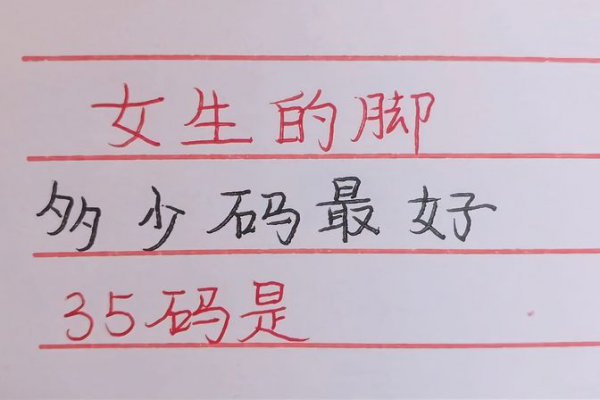 女生的脚
多少码最好
35码是